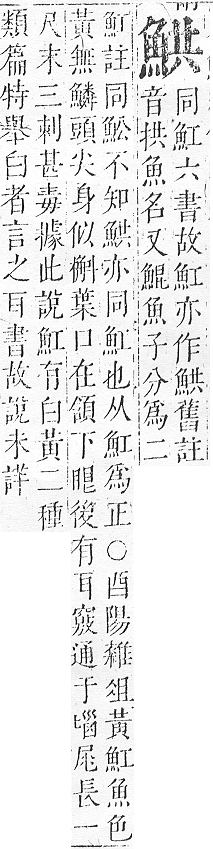 䱋
同魟六書故魟亦作䱋舊註
音拱魚名又鯤魚子分爲二
魟註同䰸不知䱋亦同魟也从魟爲正○酉陽雜俎黃魟魚色
黃無鱗頭尖身似槲葉口在頷下眼後有耳竅通于腦尾長一
尺末三刺甚毒據此說魟有白黃二種
類篇特舉白者言之耳書故說未詳